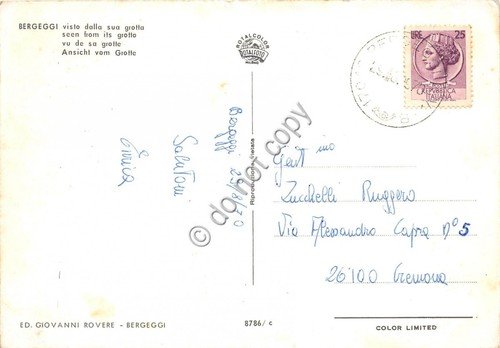 BERGEGGI visto dalla sua grotta
seen from its grotto
vu de sa grotte
Ansicht vom Grotte
ROTALCOLOR
ROTALFOTO
LIRE 25
REPUBBLICA
ITALIANA
Bergeggi 29/8/70
Saluti
Enrica
Gent.mo
Zucchelli Ruggero
Via Alessandro Capra N° 5
26100 Cremona
do not copy
ED. GIOVANNI ROVERE - BERGEGGI
8786/c
COLOR LIMITED